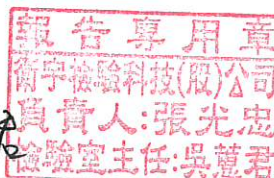 報告專用章
衛宇檢驗科技(股)公司
負責人:張光忠
檢驗室主任:吳蕙君